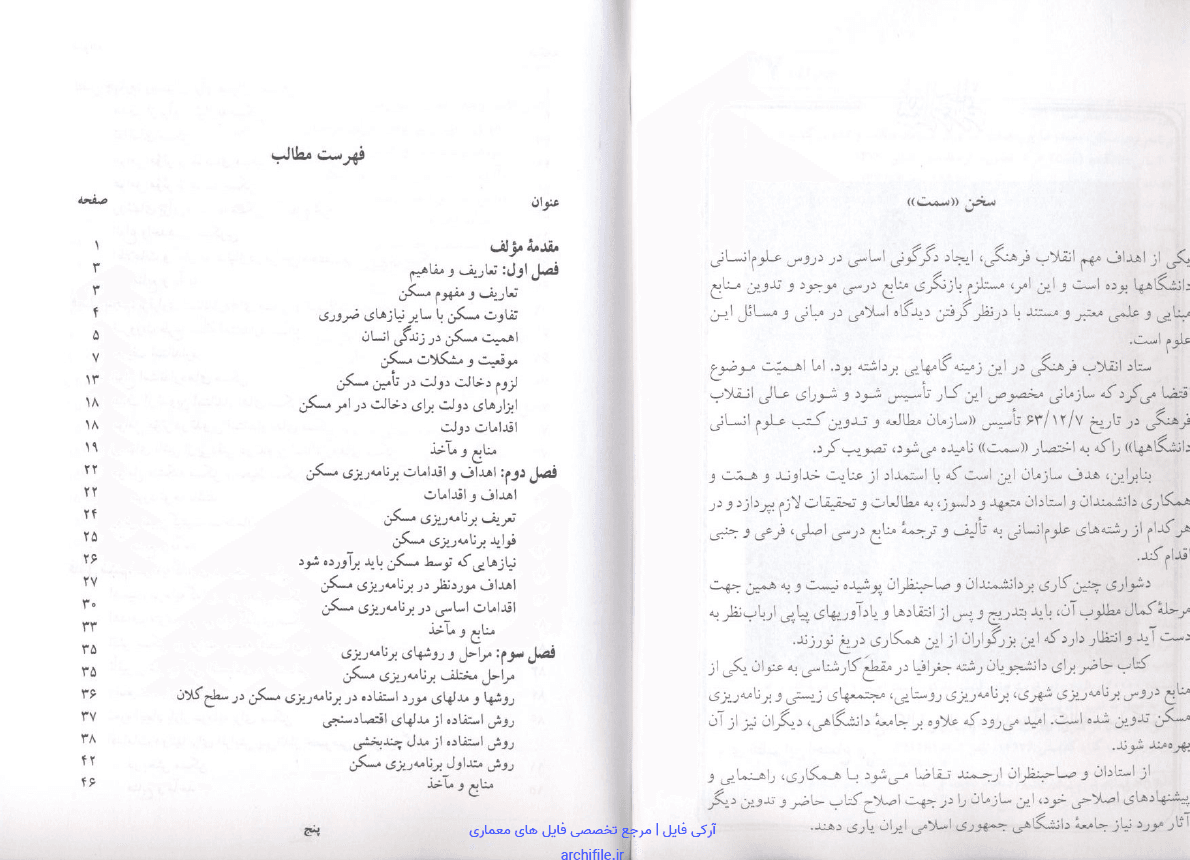 سخن «سمت»
یکی از اهداف مهم انقلاب فرهنگی، ایجاد دگرگونی اساسی در دروس علوم‌انسانی
دانشگاهها بوده است و این امر، مستلزم بازنگری منابع درسی موجود و تدوین منابع
مبنایی و علمی معتبر و مستند با درنظر گرفتن دیدگاه اسلامی در مبانی و مسائل این
علوم است.
ستاد انقلاب فرهنگی در این زمینه گامهایی برداشته بود. اما اهمیّت موضوع
اقتضا می‌کرد که سازمانی مخصوص این کار تأسیس شود و شورای عالی انقلاب
فرهنگی در تاریخ ۶۳/۱۲/۷ تأسیس «سازمان مطالعه و تدوین کتب علوم انسانی
دانشگاهها» را که به اختصار «سمت» نامیده می‌شود، تصویب کرد.
بنابراین، هدف سازمان این است که با استمداد از عنایت خداوند و همّت و
همکاری دانشمندان و استادان متعهد و دلسوز، به مطالعات و تحقیقات لازم بپردازد و در
هر کدام از رشته‌های علوم‌انسانی به تألیف و ترجمهٔ منابع درسی اصلی، فرعی و جنبی
اقدام کند.
دشواری چنین کاری بر دانشمندان و صاحبنظران پوشیده نیست و به همین جهت
مرحلهٔ کمال مطلوب آن، باید بتدریج و پس از انتقادها و یادآوریهای پیاپی ارباب‌نظر به
دست آید و انتظار دارد که این بزرگواران از این همکاری دریغ نورزند.
کتاب حاضر برای دانشجویان رشته جغرافیا در مقطع کارشناسی به عنوان یکی از
منابع دروس برنامه‌ریزی شهری، برنامه‌ریزی روستایی، مجتمعهای زیستی و برنامه‌ریزی
مسکن تدوین شده است. امید می‌رود که علاوه بر جامعهٔ دانشگاهی، دیگران نیز از آن
بهره‌مند شوند.
از استادان و صاحبنظران ارجمند تقاضا می‌شود با همکاری، راهنمایی و
پیشنهادهای اصلاحی خود، این سازمان را در جهت اصلاح کتاب حاضر و تدوین دیگر
آثار مورد نیاز جامعهٔ دانشگاهی جمهوری اسلامی ایران یاری دهند.
فهرست مطالب
عنوان صفحه
مقدمهٔ مؤلف ۱
فصل اول: تعاریف و مفاهیم ۳
تعاریف و مفهوم مسکن ۳
تفاوت مسکن با سایر نیازهای ضروری ۴
اهمیت مسکن در زندگی انسان ۵
موقعیت و مشکلات مسکن ۷
لزوم دخالت دولت در تأمین مسکن ۱۳
ابزارهای دولت برای دخالت در امر مسکن ۱۸
اقدامات دولت ۱۸
منابع و مآخذ ۱۹
فصل دوم: اهداف و اقدامات برنامه‌ریزی مسکن ۲۲
اهداف و اقدامات ۲۲
تعریف برنامه‌ریزی مسکن ۲۴
فواید برنامه‌ریزی مسکن ۲۵
نیازهایی که توسط مسکن باید برآورده شود ۲۶
اهداف موردنظر در برنامه‌ریزی مسکن ۲۷
اقدامات اساسی در برنامه‌ریزی مسکن ۳۰
منابع و مآخذ ۳۳
فصل سوم: مراحل و روشهای برنامه‌ریزی ۳۵
مراحل مختلف برنامه‌ریزی مسکن ۳۵
روشها و مدلهای مورد استفاده در برنامه‌ریزی مسکن در سطح کلان ۳۶
روش استفاده از مدلهای اقتصادسنجی ۳۷
روش استفاده از مدل چندبخشی ۳۸
روش متداول برنامه‌ریزی مسکن ۴۲
منابع و مآخذ ۴۶
پنج
آرکی فایل | مرجع تخصصی فایل های معماری
archifile.ir